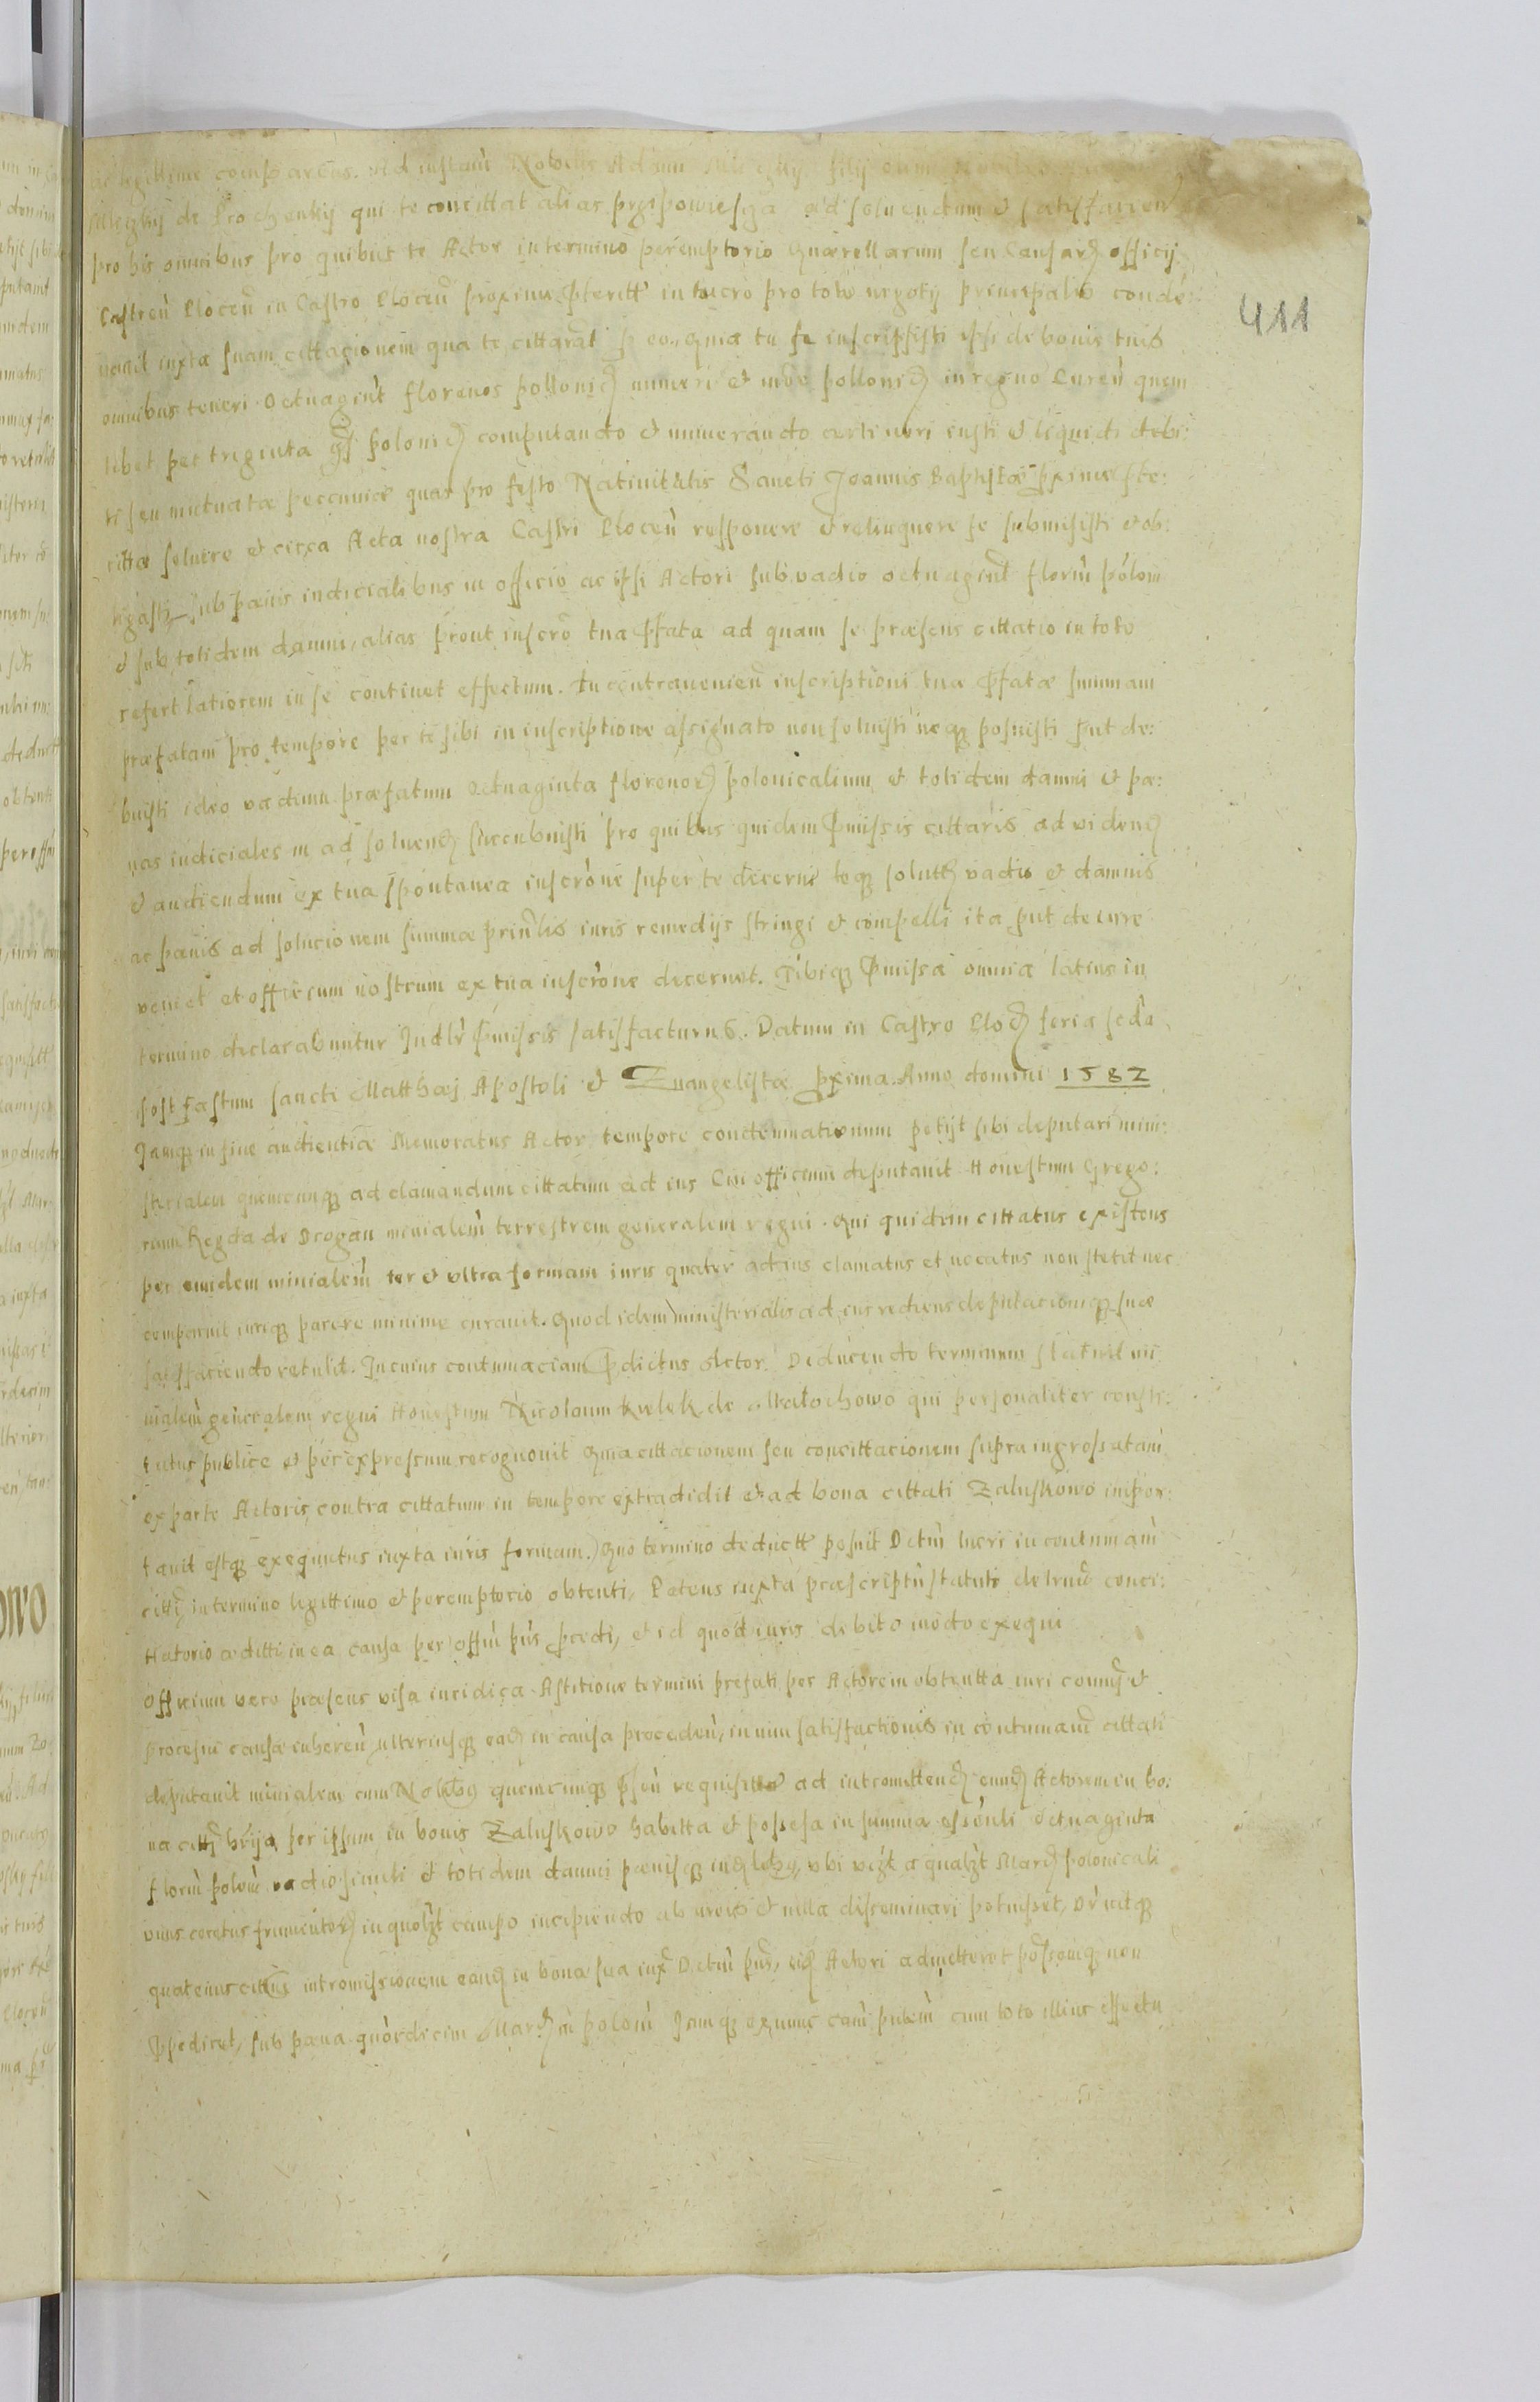 legittime compareas. Ad instan̄ Nobilis Adami filij
de Prochenkij qui te concittat alias przipowiesga ad soluendum et satisfacien
pro his omnibus pro quibus te Actor in termino peremptorio Quærellarum seu Causarų officij
Castren̄ Plocen̄ in Castro Plocen̄ proxime ꝑteritt in lucro pro toto negotij principalis conde:
411
nauit iuxta suam cittacionem qua te cittarat eo. quia tu se inscripsisti ipsi de bonis tuis
omnibus teneri octuagint florenos pollonic numeri et mo̅e pollonic in regno Curen̄ quem
libet per triginta gr̄ polonic computando et numerando certi ueri iusti et liquidi debi:
ti seu mutuatæ pecuniæ quas pro festo Natiuitatis Sancti Joannis Baptistæ pxime ꝑte:
ritto soluere et circa Acta nostra Castri Plocen̄ responere et relinquere se submisisti et ob:
ligasti sub pænis iudicialibus in officio ac ipsi Actori sub vadio octuagint florin̄ polon
et sub totidem damni, alias prout inscro̅ tua ꝑfata ad quam se præsens cittatio in toto
refert latiorem in se continet effectum. Tu contraueniens inscriptioni tuæ ꝑfatæ summam
præfatam pro tempore per te sibi in inscriptione assignato non soluisti neqȝ posuisti put de:
buisti ideo vadium præfatum octuaginta florenorų polonicalium et totidem damni et pæ:
nas iudiciales in ad soluend succubuisti pro quibus quidem ꝑmissis cittaris ad videnđ
et audiendum ex tua spontanea inscro̅ne super te decerni teqȝ solutis vadio et damnis
ac pænis ad solucionem summæ prin̄lis iuris remedijs stringi et compelli ita put de iure
veniet et officium nostrum ex tua inscro̅ne decernet. Tibiqȝ ꝑmissa omnia latius in
termino declarabuntur Judlr̄ ꝑmissis satisfacturus. Datum in Castro Ploc feria seda
post Fæstum sancti Matthæj Apostoli et Euangelistæ pxima. Anno domini 1582
Jamqȝ in fine audientiæ Memoratus Actor tempore condemnationum petijt sibi deputari mini:
sterialem quemcunqȝ ad clamandum cittatum ad ius Cui officium deputauit Honestum Grego:
rium Regda de Drogan minialem̄ terrestrem generalem regni. Qui quidem cittatus existens
per eundem minialem̄ ter et vltra formam iuris quater ad ius clamatus et uocatus non stetit nec
comparuit iuriqȝ parere minime curauit. Quod idem ministerialis ad ius rediens deputacioniqȝ suæ
satisfaciendo retulit. In cuius contumaciam ꝑdictus Actor Deducendo terminum statuit mi
nialem̄ generalem regni Honestum Nicolaum Kulek de Malochowo qui personaliter consti:
tutus publice et per expressum recognouit Quia cittacionem seu concittacionem supra ingrossatam
ex parte Actoris contra cittatum in tempore extradidit et ad bona cittati Zaluskowo inpor:
tauit estqȝ exequutus iuxta iuris formam. Quo termino deductt posuit Dctm̄ lucri in contumam̄
citti in termino legittimo et peremptorio obtenti, Petens iuxta præscriptū statuti de conci:
ttatorio æditti in ea causa per offm̄ pn̄s pcedi, et id quod iuris debito modo exequi
Officium vero præsens visa iuridica Astitione termini præfati per Actorem obtentta iuri commi et
processui causæ inheren̄ ulteriusqȝ eađ in causa proceden̄, in uim satisfactionis in contumam̄ cittati
deputauit minialem cum Nobilibȝ quemcunqȝ psen̄ requisitt ad intromittend eund Actorem in bo:
na citti hr̄ija per ipsum in bonis Zaluskowo habitta et possessa in summa essen̄li octuaginta
florin̄ polon̄ vadio simili et totidem damni pænisqȝ iudlibȝ, vbi qualȝt Marc polonicali
vnus coretus frumentorų in quolȝt campo incipiendo ab areis et uilla disseminari potuisset,
quatenus intromissionem eand in bona sua iux Dctm̄ pn̄s, eid Actori admitteret possesseqȝ non
ꝑpediret, sub pæna quordecim Marc polon̄ Jamqȝ exnunc eam̄ cum toto illius effectu